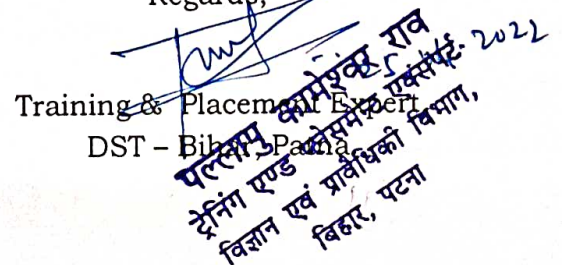 Regards,
Training & Placement Expert,
DST – Bihar, Patna.
पल्लापु कामेश्वर राव
ट्रेनिंग एण्ड प्लेसमेन्ट एक्सपर्ट
विज्ञान एवं प्रावैधिकी विभाग,
बिहार, पटना
2022